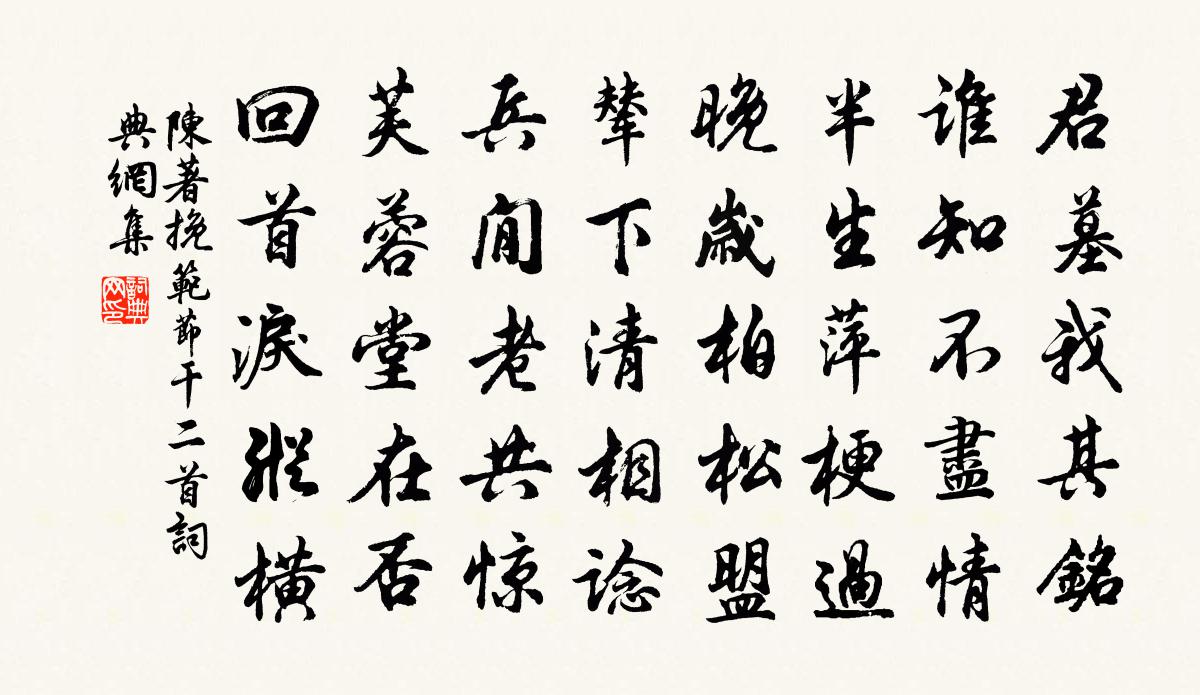 君墓我其銘
誰知不盡情
半生萍梗過
晚歲柏松盟
輦下清相諗
兵間老共惊
芙蓉堂在否
回首淚縱橫
陳著挽範節干二首詞
典網集
詞典
网印